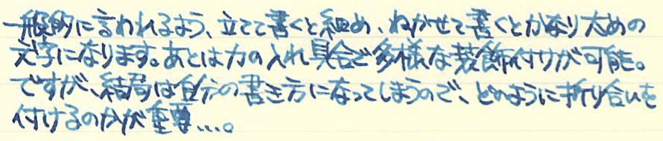 一般的に言われるよう、立てて書くと細め、ねかせて書くとかなり太めの
文字になります。あとは力の入れ具合で多様な装飾付けが可能。
ですが、結局は自分の書き方になってしまうので、どのように折り合いを
付けるのかが重要…。